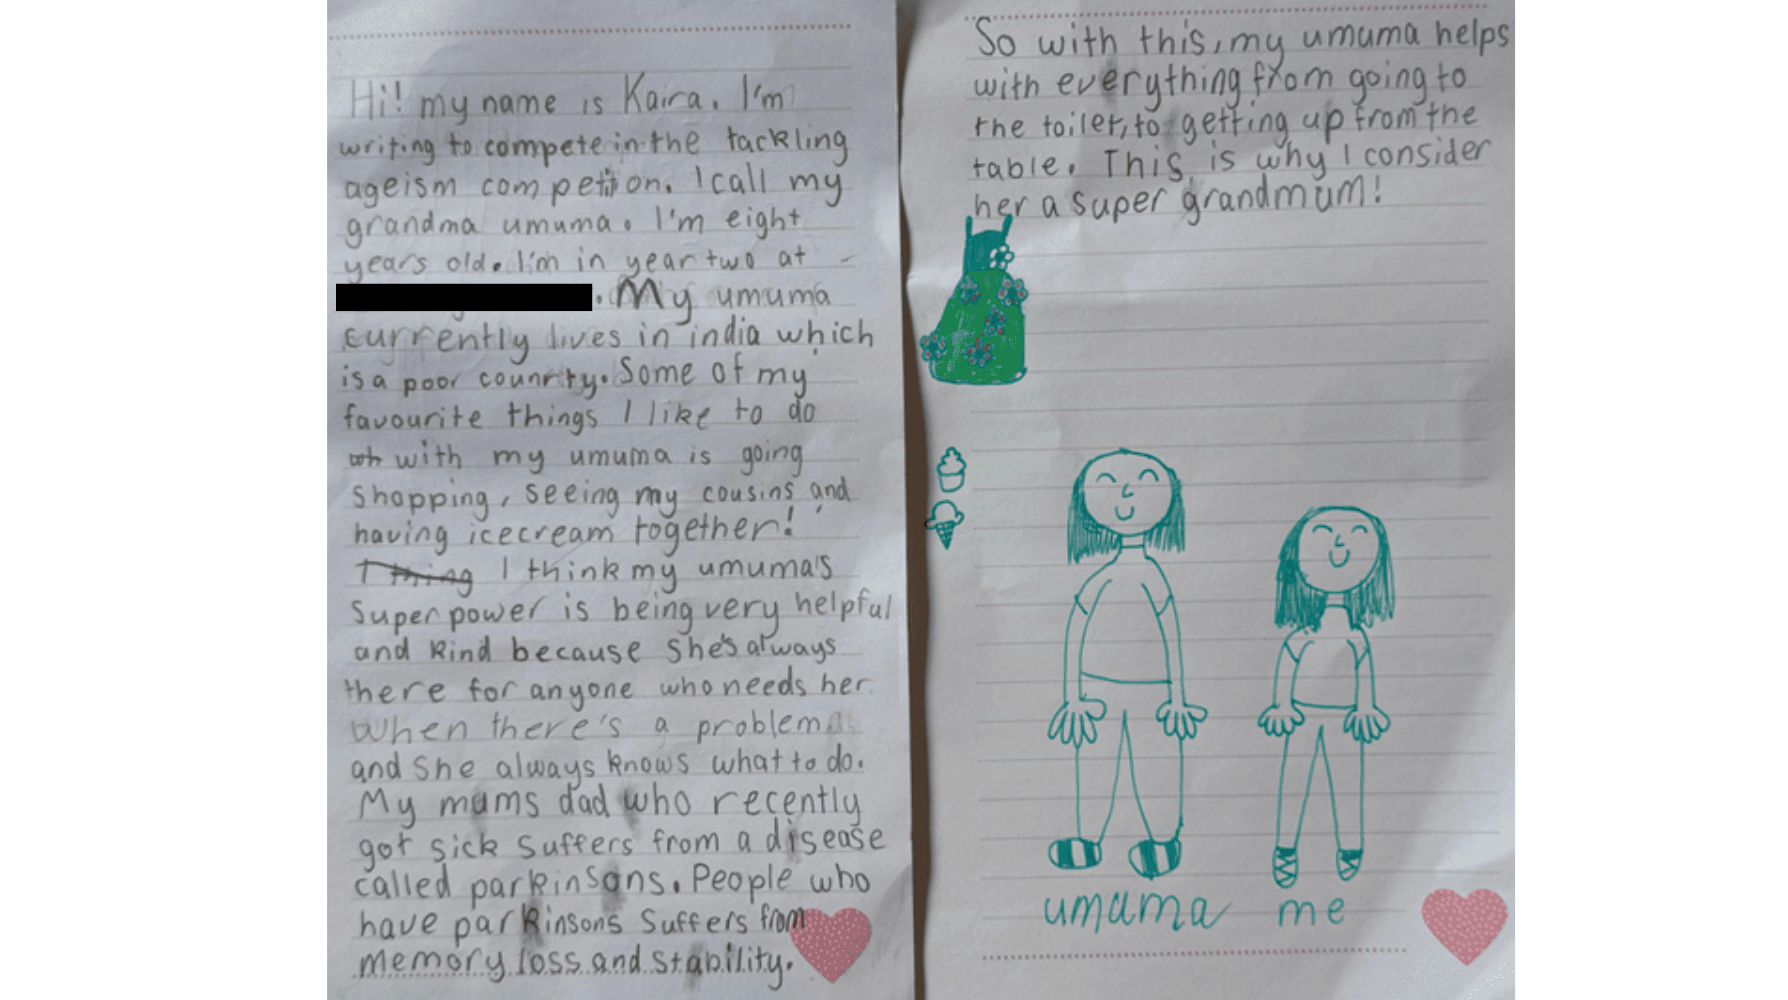 Hi! my name is Kaira. I'm
writing to compete in the tackling
ageism competition. I call my
grandma umuma. I'm eight
years old. I'm in year two at
. My umuma
currently lives in india which
is a poor counrty. Some of my
favourite things I like to do
with my umuma is going
shopping, seeing my cousins and
having icecream together!
I thing I think my umuma's
Super power is being very helpful
and kind because she's always
there for anyone who needs her.
When there's a problem
and she always knows what to do.
My mums dad who recently
got sick suffers from a disease
called parkinsons. People who
have parkinsons suffers from
memory loss and stability.
So with this, my umuma helps
with everything from going to
the toilet, to getting up from the
table. This is why I consider
her a super grandmum!
umuma me